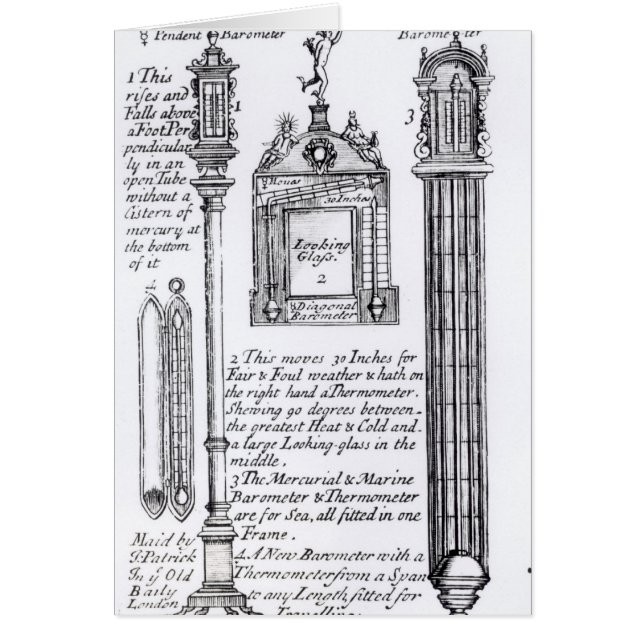 ☿ Pendent Barometer
Barometer
1 This
rises and
Falls above
a Foot Per
pendicular
ly in an
open Tube
without a
Cistern of
mercury at
the bottom
of it
1
30 Inches
Looking
Glass.
2
☿ Diagonal
Barometer
3
4
2 This moves 30 Inches for
Fair & Foul weather & hath on
the right hand a Thermometer.
Shewing 90 degrees between
the greatest Heat & Cold and
a large Looking-glass in the
middle.
3 The Mercurial & Marine
Barometer & Thermometer
are for Sea, all fitted in one
Frame.
4. A New Barometer with a
Thermometer from a Span
to any Length, fitted for
Travelling
Maid by
J. Patrick
In yͤ Old
Baily
London